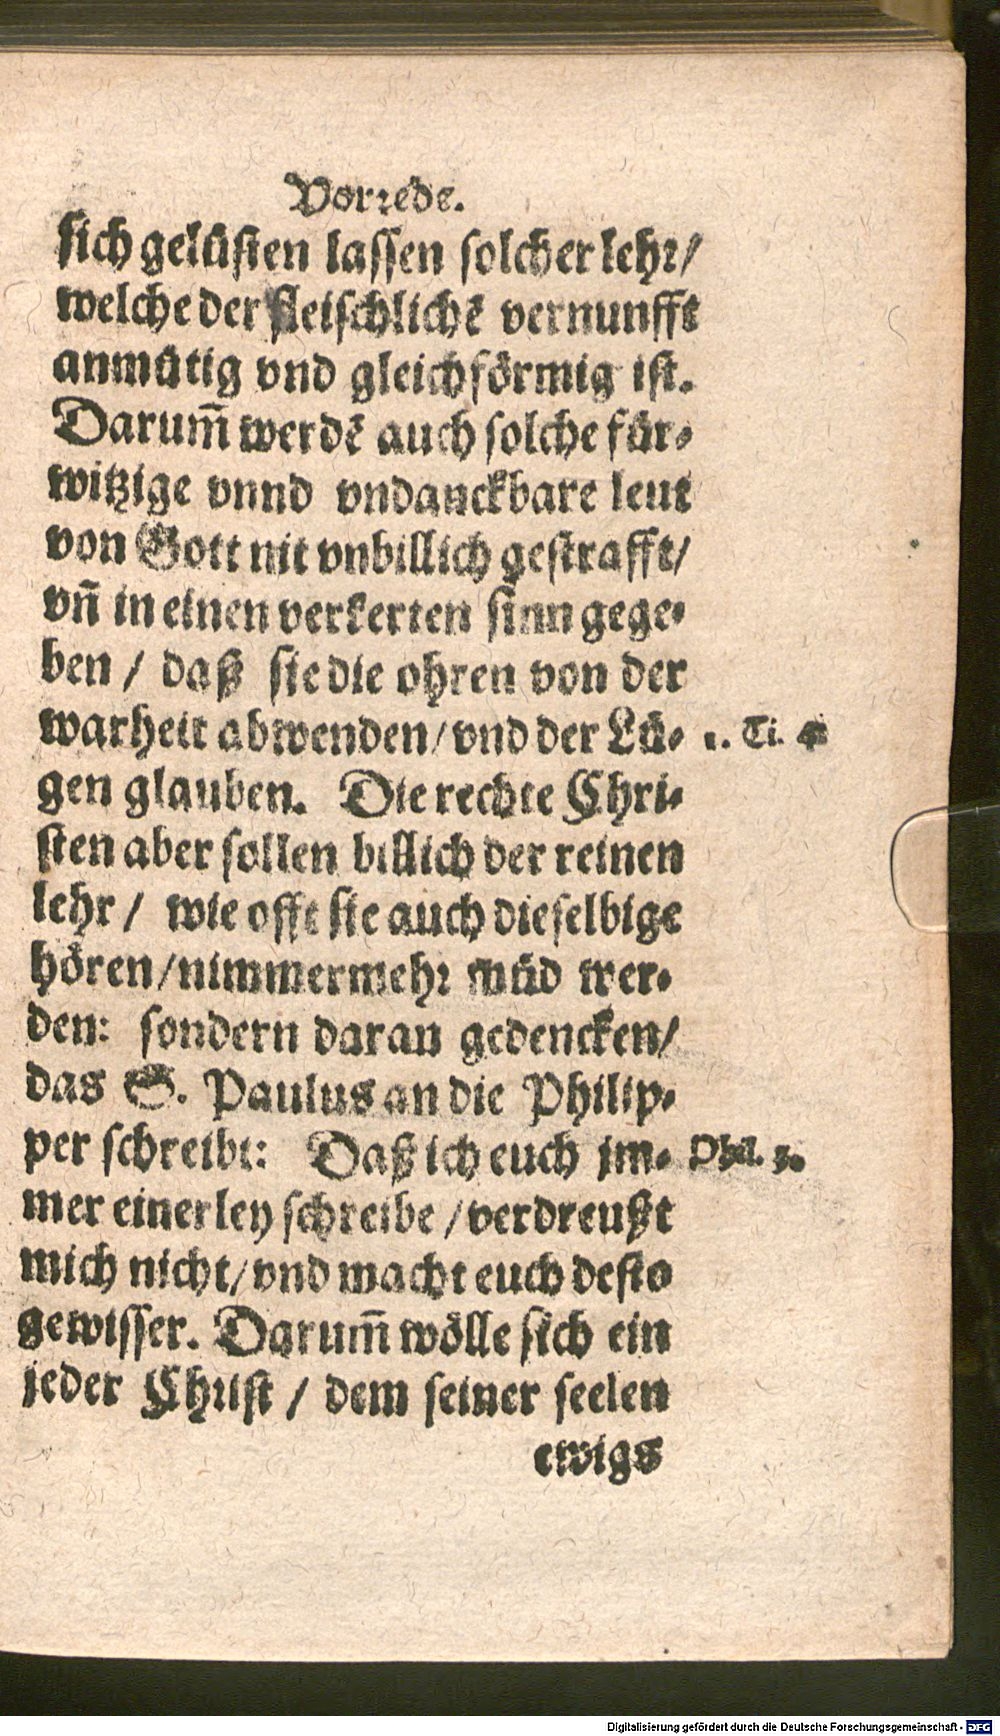 Vorrede.
sich gelüsten lassen solcher lehr/
welche der fleischlichẽ vernunfft
anmütig vnd gleichförmig ist.
Darum̃ werdẽ auch solche für-
witzige vnnd vndanckbare leut
von Gott nit vnbillich gestrafft/
vñ in einen verkerten sinn gege-
ben / daß sie die ohren von der
warheit abwenden/vnd der Lü- 1. Ti. 4
gen glauben. Die rechte Chri-
sten aber sollen billich der reinen
lehr / wie offt sie auch dieselbige
hören/nimmermehr müd wer-
den: sondern daran gedencken/
das S. Paulus an die Philip-
per schreibt: Daß ich euch jm- Phil. 3.
mer einerley schreibe /verdreußt
mich nicht/vnd macht euch desto
gewisser. Darum̃ wölle sich ein
jeder Christ / dem seiner seelen
ewigs
Digitalisierung gefördert durch die Deutsche Forschungsgemeinschaft - DFG